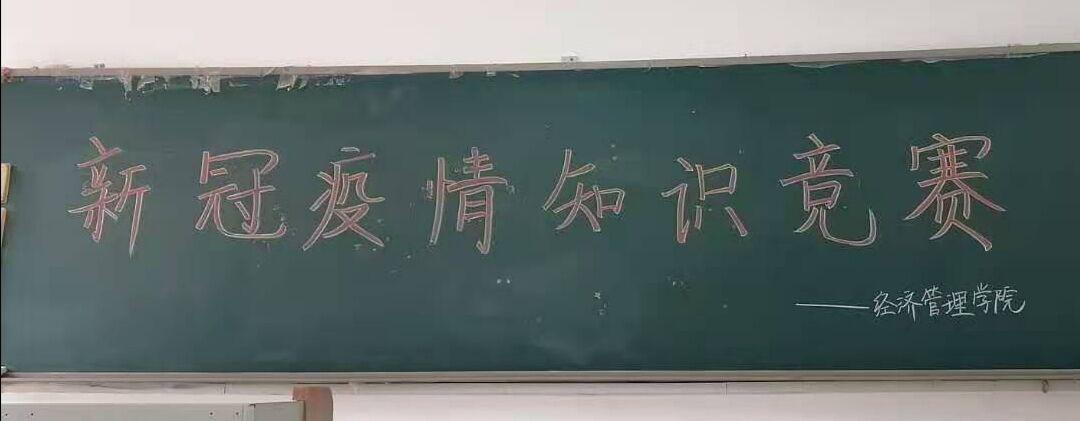 新冠疫情知识竞赛
——经济管理学院